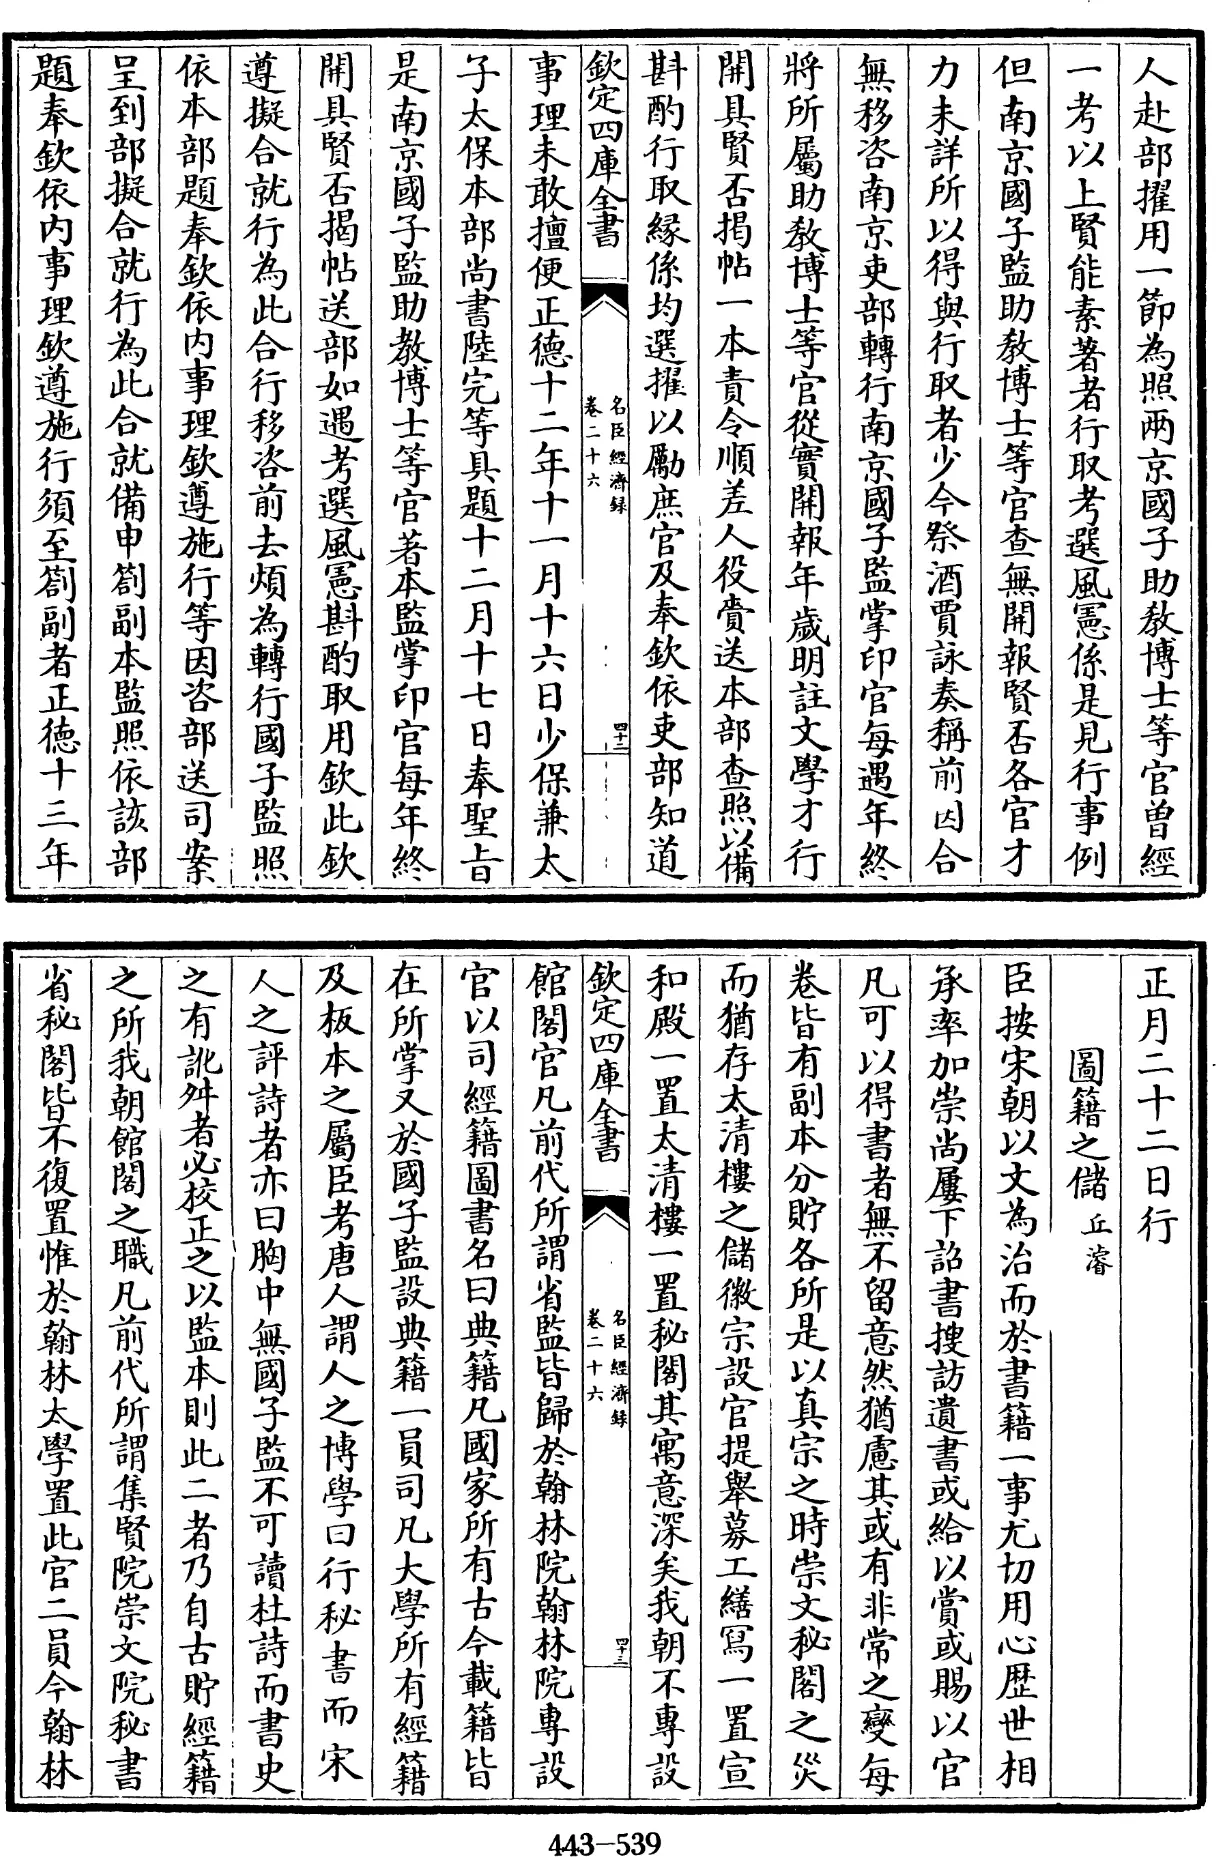 人赴部擢用一節為照兩京國子助教博士等官曾經
一考以上賢能素著者行取考選風憲係是見行事例
但南京國子監助教博士等官查無開報賢否各官才
力未詳所以得與行取者少今祭酒賈詠奏稱前因合
無移咨南京吏部轉行南京國子監掌印官每遇年終
將所屬助教博士等官從實開報年歲明註文學才行
開具賢否揭帖一本責令順差人役賫送本部查照以備
斟酌行取緣係均選擢以勵庶官及奉欽依吏部知道
欽定四庫全書
名臣經濟録
卷二十六
四十二
事理未敢擅便正德十二年十一月十六日少保兼太
子太保本部尚書陸完等具題十二月十七日奉聖旨
是南京國子監助教博士等官著本監掌印官每年終
開具賢否揭帖送部如遇考選風憲斟酌取用欽此欽
遵擬合就行為此合行移咨前去煩為轉行國子監照
依本部題奉欽依内事理欽遵施行等因咨部送司案
呈到部擬合就行為此合就備申劄副本監照依該部
題奉欽依内事理欽遵施行須至劄副者正德十三年
正月二十二日行
圖籍之儲 丘濬
臣按宋朝以文為治而於書籍一事尤切用心歷世相
承率加崇尚屢下詔書搜訪遺書或給以賞或賜以官
凡可以得書者無不留意然猶慮其或有非常之變每
卷皆有副本分貯各所是以真宗之時崇文秘閣之災
而猶存太清樓之儲徽宗設官提舉募工繕寫一置宣
和殿一置太清樓一置秘閣其寓意深矣我朝不專設
欽定四庫全書
名臣經濟録
卷二十六
四十三
館閣官凡前代所謂省監皆歸於翰林院翰林院專設
官以司經籍圖書名曰典籍凡國家所有古今載籍皆
在所掌又於國子監設典籍一員司凡大學所有經籍
及板本之屬臣考唐人謂人之博學曰行秘書而宋
人之評詩者亦曰胸中無國子監不可讀杜詩而書史
之有訛舛者必校正之以監本則此二者乃自古貯經籍
之所我朝館閣之職凡前代所謂集賢院崇文院秘書
省秘閣皆不復置惟於翰林太學置此官二員今翰林
443-539